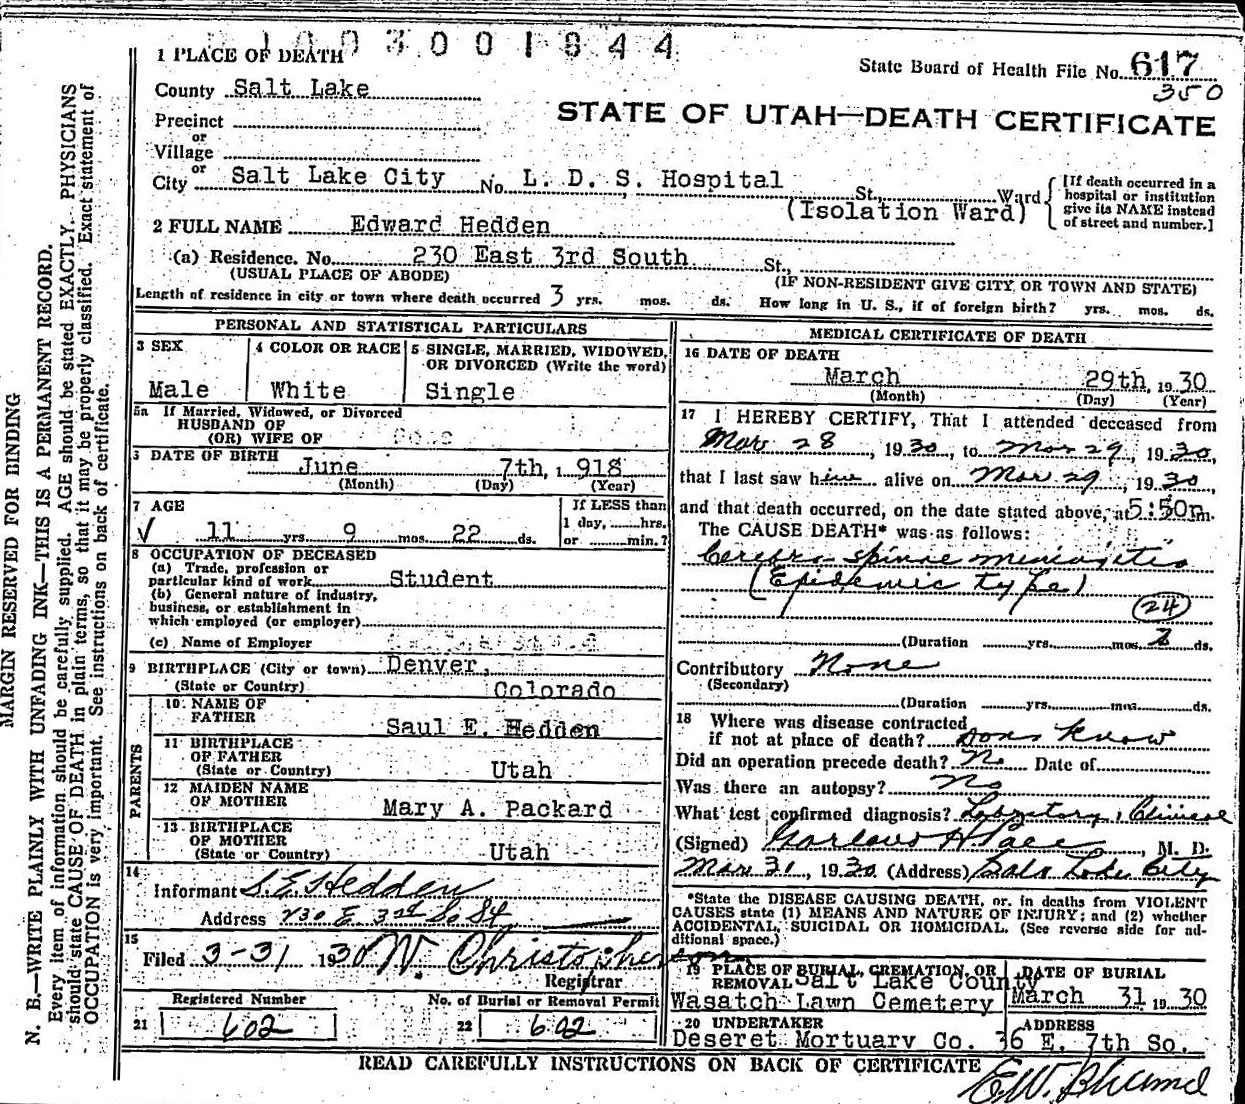 1003001844
1 PLACE OF DEATH
State Board of Health File No. 617
350
County Salt Lake
STATE OF UTAH—DEATH CERTIFICATE
Precinct
or
Village
or
City Salt Lake City No. L. D. S. Hospital St., Ward
(Isolation Ward)
[If death occurred in a
hospital or institution
give its NAME instead
of street and number.]
2 FULL NAME Edward Hedden
(a) Residence. No. 230 East 3rd South St.,
(USUAL PLACE OF ABODE) (IF NON-RESIDENT GIVE CITY OR TOWN AND STATE)
Length of residence in city or town where death occurred 3 yrs. mos. ds. How long in U. S., if of foreign birth? yrs. mos. ds.
PERSONAL AND STATISTICAL PARTICULARS
3 SEX
Male
4 COLOR OR RACE
White
5 SINGLE, MARRIED, WIDOWED,
OR DIVORCED (Write the word)
Single
5a If Married, Widowed, or Divorced
HUSBAND OF
(OR) WIFE OF
6 DATE OF BIRTH
June 7th, 1918
(Month) (Day) (Year)
7 AGE
√ 11 yrs. 9 mos. 22 ds.
If LESS than
1 day, hrs.
or min.?
8 OCCUPATION OF DECEASED
(a) Trade, profession or
particular kind of work Student
(b) General nature of industry,
business, or establishment in
which employed (or employer)
(c) Name of Employer
9 BIRTHPLACE (City or town) Denver,
(State or Country) Colorado
PARENTS
10 NAME OF
FATHER
Saul E. Hedden
11 BIRTHPLACE
OF FATHER
(State or Country) Utah
12 MAIDEN NAME
OF MOTHER Mary A. Packard
13 BIRTHPLACE
OF MOTHER
(State or Country) Utah
14
Informant S. E. Hedden
Address 230 E. 3rd So St
15
Filed 3-31 1930 W. Christopherson
Registrar
Registered Number
21 602
No. of Burial or Removal Permit
22 602
MEDICAL CERTIFICATE OF DEATH
16 DATE OF DEATH
March 29th, 1930
(Month) (Day) (Year)
17 I HEREBY CERTIFY, That I attended deceased from
Mar 28, 1930, to Mar 29, 1930,
that I last saw him alive on Mar 29, 1930,
and that death occurred, on the date stated above, at 5:50 m.
The CAUSE DEATH* was as follows:
Cerebro spinal meningitis
(Epidemic type)
24
(Duration yrs. mos. 2 ds.
Contributory None
(Secondary)
(Duration yrs. mos. ds.
18 Where was disease contracted
if not at place of death? Dont Know
Did an operation precede death? No Date of
Was there an autopsy? No
What test confirmed diagnosis? Laboratory, Clinical
(Signed) H. Pace, M. D.
Mar 31, 1930 (Address) Salt Lake City
*State the DISEASE CAUSING DEATH, or, in deaths from VIOLENT
CAUSES state (1) MEANS AND NATURE OF INJURY; and (2) whether
ACCIDENTAL, SUICIDAL OR HOMICIDAL. (See reverse side for ad-
ditional space.)
19 PLACE OF BURIAL, CREMATION, OR
REMOVAL Salt Lake County
Wasatch Lawn Cemetery
DATE OF BURIAL
March 31 1930
20 UNDERTAKER ADDRESS
Deseret Mortuary Co. 36 E. 7th So.
READ CAREFULLY INSTRUCTIONS ON BACK OF CERTIFICATE
E.W.
MARGIN RESERVED FOR BINDING
N. B.—WRITE PLAINLY WITH UNFADING INK—THIS IS A PERMANENT RECORD.
Every item of information should be carefully supplied. AGE should be stated EXACTLY. PHYSICIANS
should state CAUSE OF DEATH in plain terms, so that it may be properly classified. Exact statement of
OCCUPATION is very important. See instructions on back of certificate.